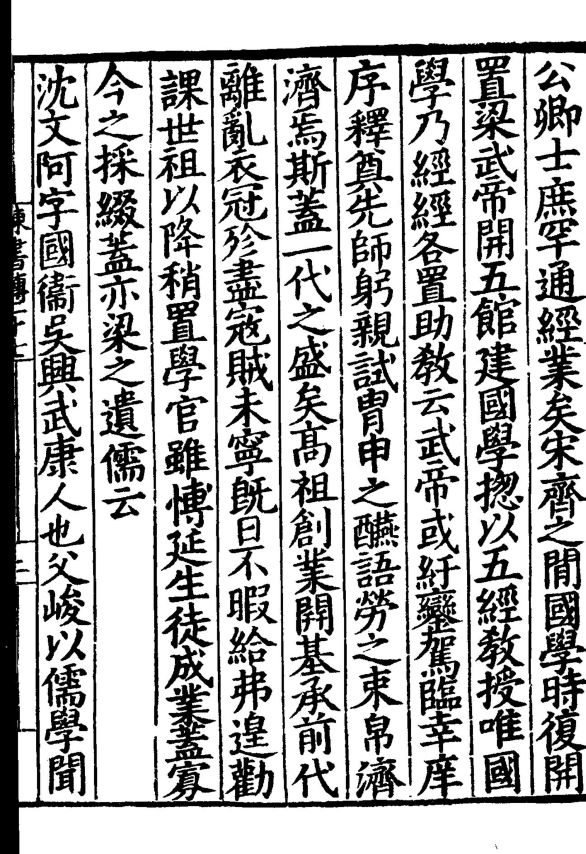 公卿士庶罕通經業矣宋齊之間國學時復開
置梁武帝開五館建國學揔以五經教授唯國
學乃經經各置助教云武帝或紆鑾駕臨幸庠
序釋奠先師躬親試胄申之醼語勞之束帛濟
濟焉斯蓋一代之盛矣高祖創業開基承前代
離亂衣冠殄盡寇賊未寧旣日不暇給弗遑勸
課世祖以降稍置學官雖愽延生徒成業蓋寡
今之採綴蓋亦梁之遺儒云
沈文阿字國衞吳興武康人也父峻以儒學聞